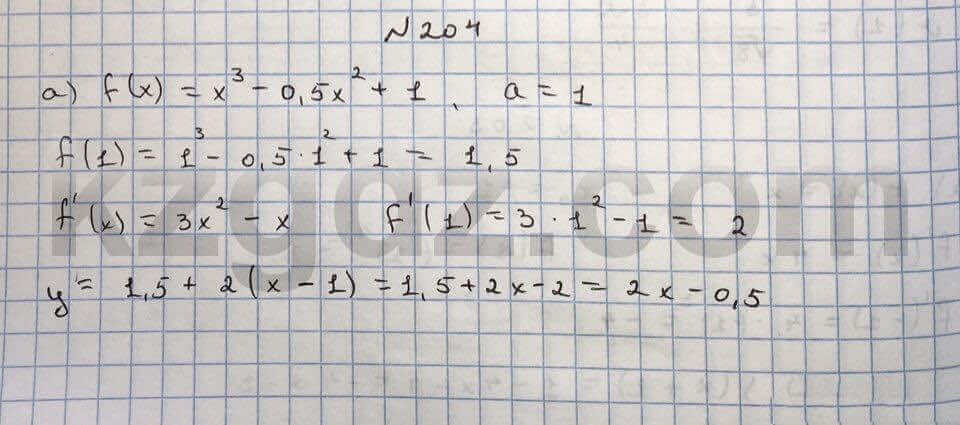 N 204
a) f(x) = x³ - 0,5x² + 1, a = 1
f(1) = 1³ - 0,5 · 1² + 1 = 1,5
f'(x) = 3x² - x f'(1) = 3 · 1² - 1 = 2
y = 1,5 + 2(x - 1) = 1,5 + 2x - 2 = 2x - 0,5
kzgdz.com